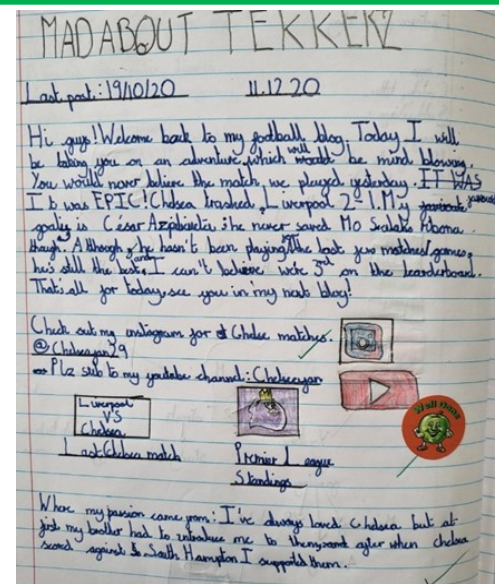 MAD ABOUT TEKKERZ
Last post: 19/10/20 11.12.20
Hi guys! Welcome back to my football blog. Today I will
be taking you on an adventure, which will would be mind blowing.
You would never believe the match, we played yesterday. IT WAS
I b was EPIC! Chelsea trashed Liverpool 2-1. My favourite
goaly is César Azpilicueta, he never saved Mo Sealahs
though. Although, he hasn't been playing the last few matches/games,
he's still the best, and I can't believe we're 3rd on the leaderboard.
That's all for today, see you in my next blog!
Check out my instagram for Chelse matches.
@Chelseayan29
Plz sub to my youtube channel: Chelseayan
Liverpool
VS
Chelsea
Last Chelsea match
Premier League
Standings
Well done
Where my passion came from: I've always loved Chelsea but at
first my brother had to introduce me to them, and after when chelsea
scored against South Hampton I supported them.